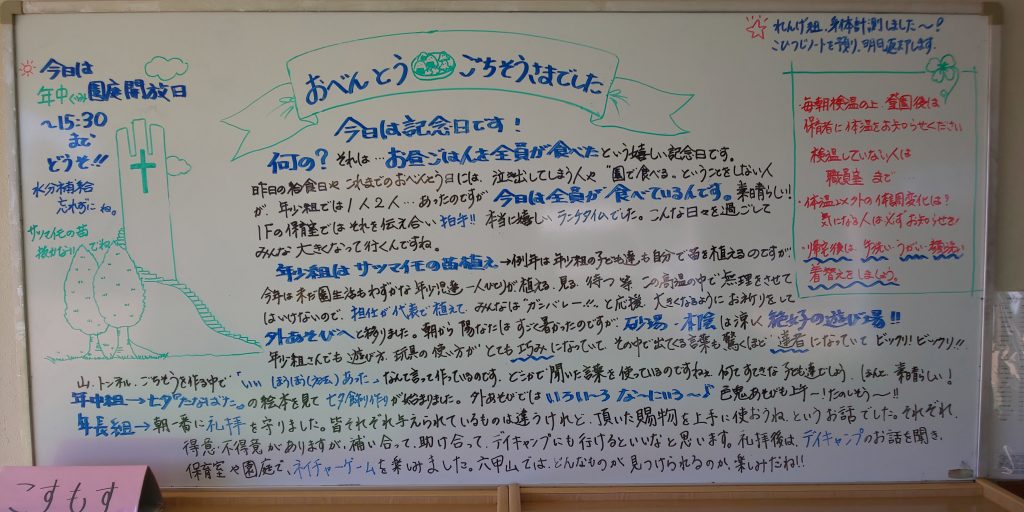 ☆ れんげ組、身体計測しました〜!
こひつじノートを預り、明日返却します.
今日は
年中ぐみ園庭開放日
〜15:30
まで
どうぞ!!
水分補給
忘れずにね。
サツマイモの苗
抜かないでね
おべんとう ごちそうさまでした
今日は記念日です!
何の? それは…お昼ごはんを全員が食べたという嬉しい記念日です。
昨日の給食日や これまでのおべんとう日には、泣き出してしまう人や"園で食べる"ということをしない人
が、年少組では1人2人…あったのですが 今日は全員が食べているんです。素晴らしい!
1Fの保育室ではそれを伝え合い 拍手!! 本当に嬉しい ランチタイムでした。こんな日々を過ごして
みんな 大きくなって行くんですね。
年少組は サツマイモの苗植え→例年は年少組の子ども達も自分で苗を植えるのですが
今年は未だ園生活もわずかな年少児達一人ひとりが植える、見る、待つ 等 この高温の中で無理をさせて
はいけないので、担任が代表で植えて、みんなは"ガンバレー!!"と応援、大きくなるように お祈りをして
外あそびへと移りました。朝から 陽なたは すごく暑かったのですが 砂場・木陰は涼しく 絶好の遊び場!!
年少組さんでも 遊び方、玩具の使い方が とても 巧みになっていて、その中で出てくる言葉も驚くほど 達者になっていて ビックリ!ビックリ!!
山、トンネル、ごちそうを作る中で"いい ほうほう(方法)あった"なんて言って作っているのです。どこかで聞いた言葉を使っているのですねぇ 何てすてきな子ども達でしょう。ほんと、素晴らしい!
年中組→七夕"たなばた"の絵本を見て 七夕飾り作りが始まりました。外あそびでは いろいろな〜にいろ〜♪ 色鬼あそびも上手ー!たのしそう〜!!
年長組→朝一番に礼拝を守りました。皆それぞれ与えられているものは違うけれど、頂いた賜物を上手に使おうね というお話でした。それぞれ、
得意・不得意がありますが、補い合って、助け合って、デイキャンプにも行けるといいなと思います。礼拝後は、デイキャンプのお話を聞き、
保育室や園庭で、ネイチャーゲームを楽しみました。六甲山では、どんなものが見つけられるのか、楽しみだね!!
・毎朝検温の上、登園後は
保育者に体温をお知らせください
検温していない人は
職員室まで…
・体温以外の体調変化は?
気になる人は必ずお知らせを!
・帰宅後は、手洗い・うがい・顔洗い
着替えをしましょう。
こすもす